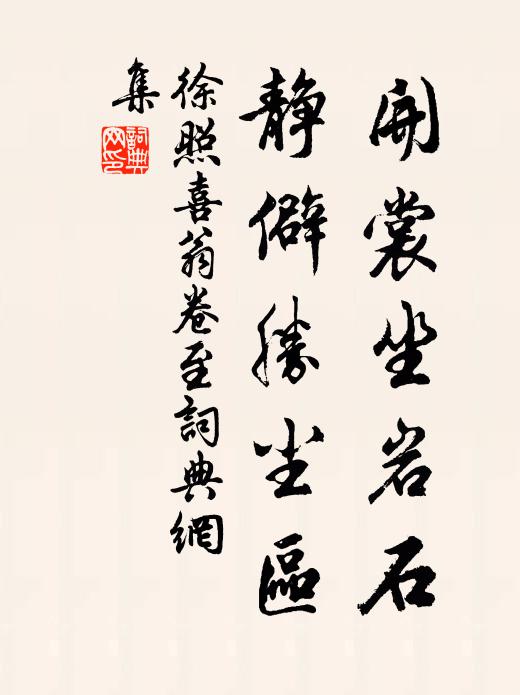 開裳坐岩石
静僻勝尘區
徐照喜翁卷至詞典網
集
詞典網印